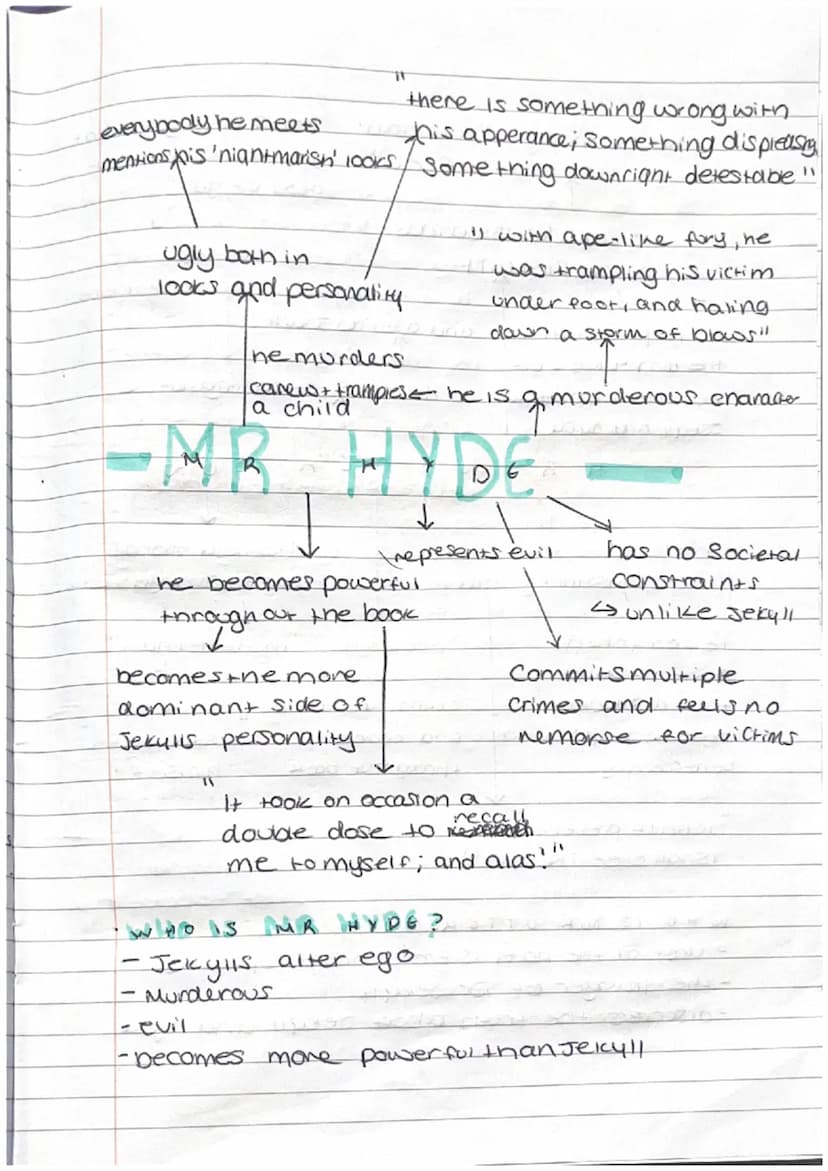 "there is something wrong with
his apperance; something displeasing
something downright detestabe"
everybody he meets
mentions his 'nightmarish' looks
ugly both in
looks and personality
"with ape-like fury, he
was trampling his victim
under foot, and haling
down a storm of blows"
he murders
carew + tramples ← he is a murderous character
a child
- MR HYDE -
M R H Y D E
he becomes powerful
throughout the book
represents evil
has no societal
constraints
↳ unlike Jekyll
becomes the more
dominant side of
Jekylls personality
Commits multiple
crimes and feels no
remorse for victims
"It took on occasion a
double dose to recall
me to myself; and alas!"
· WHO IS MR HYDE?
- Jekylls alter ego
- Murderous
- evil
- becomes more powerful than Jekyll